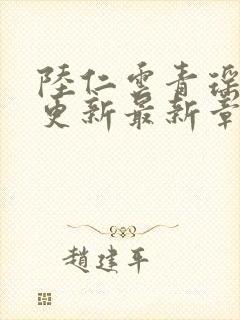 陸仁雲青瑶
更新最新章
趙建平